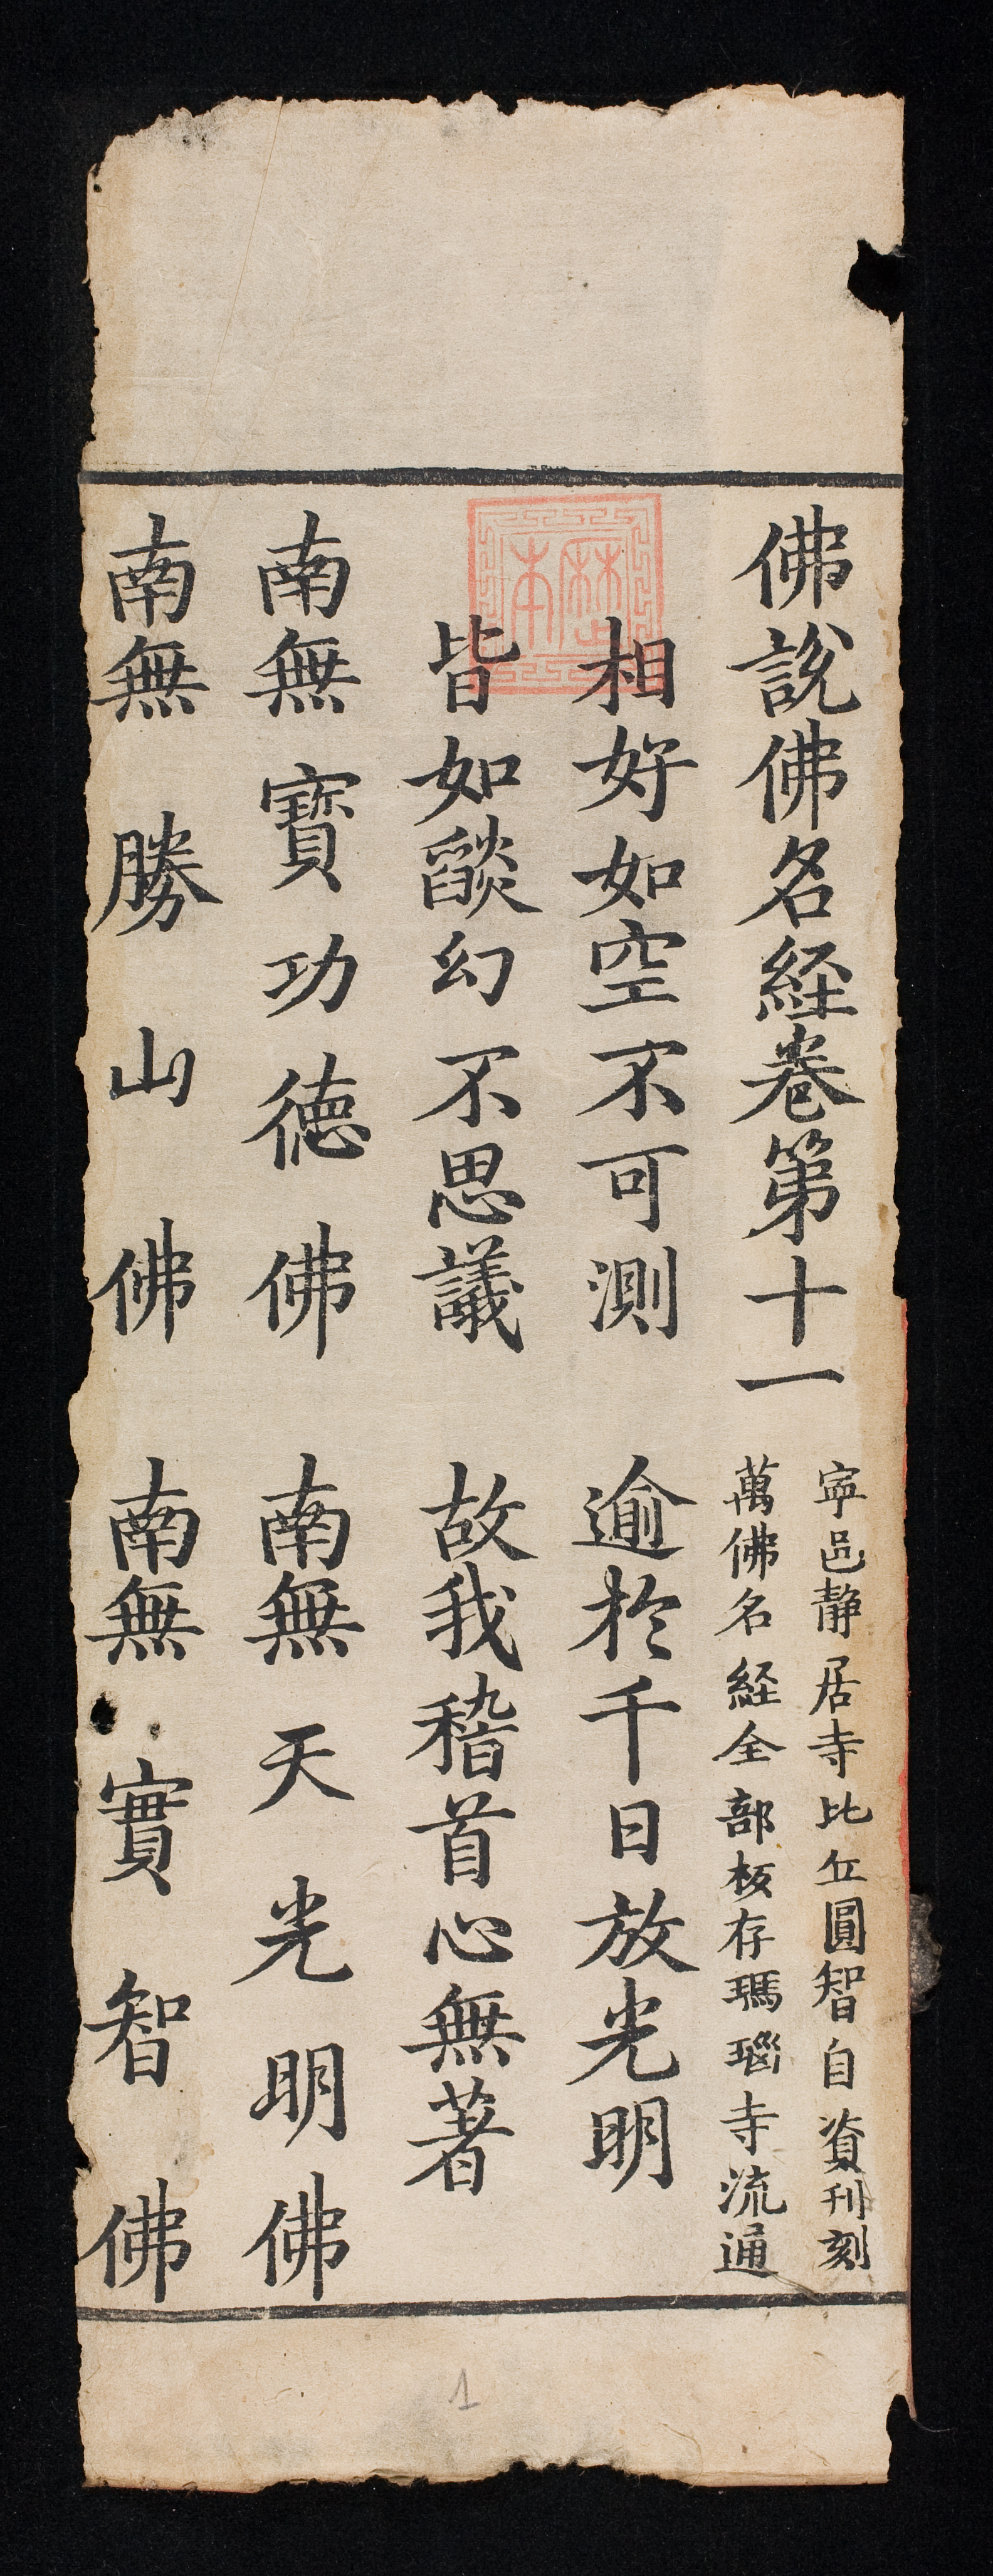 佛說佛名経卷第十一
寧邑静居寺比丘圓智自資刊刻
萬佛名経全部板存瑪瑙寺流通
相好如空不可測　逾於千日放光明
皆如燄幻不思議　故我稽首心無著
南無寶功德佛　南無天光明佛
南無勝山佛　南無實智佛
1